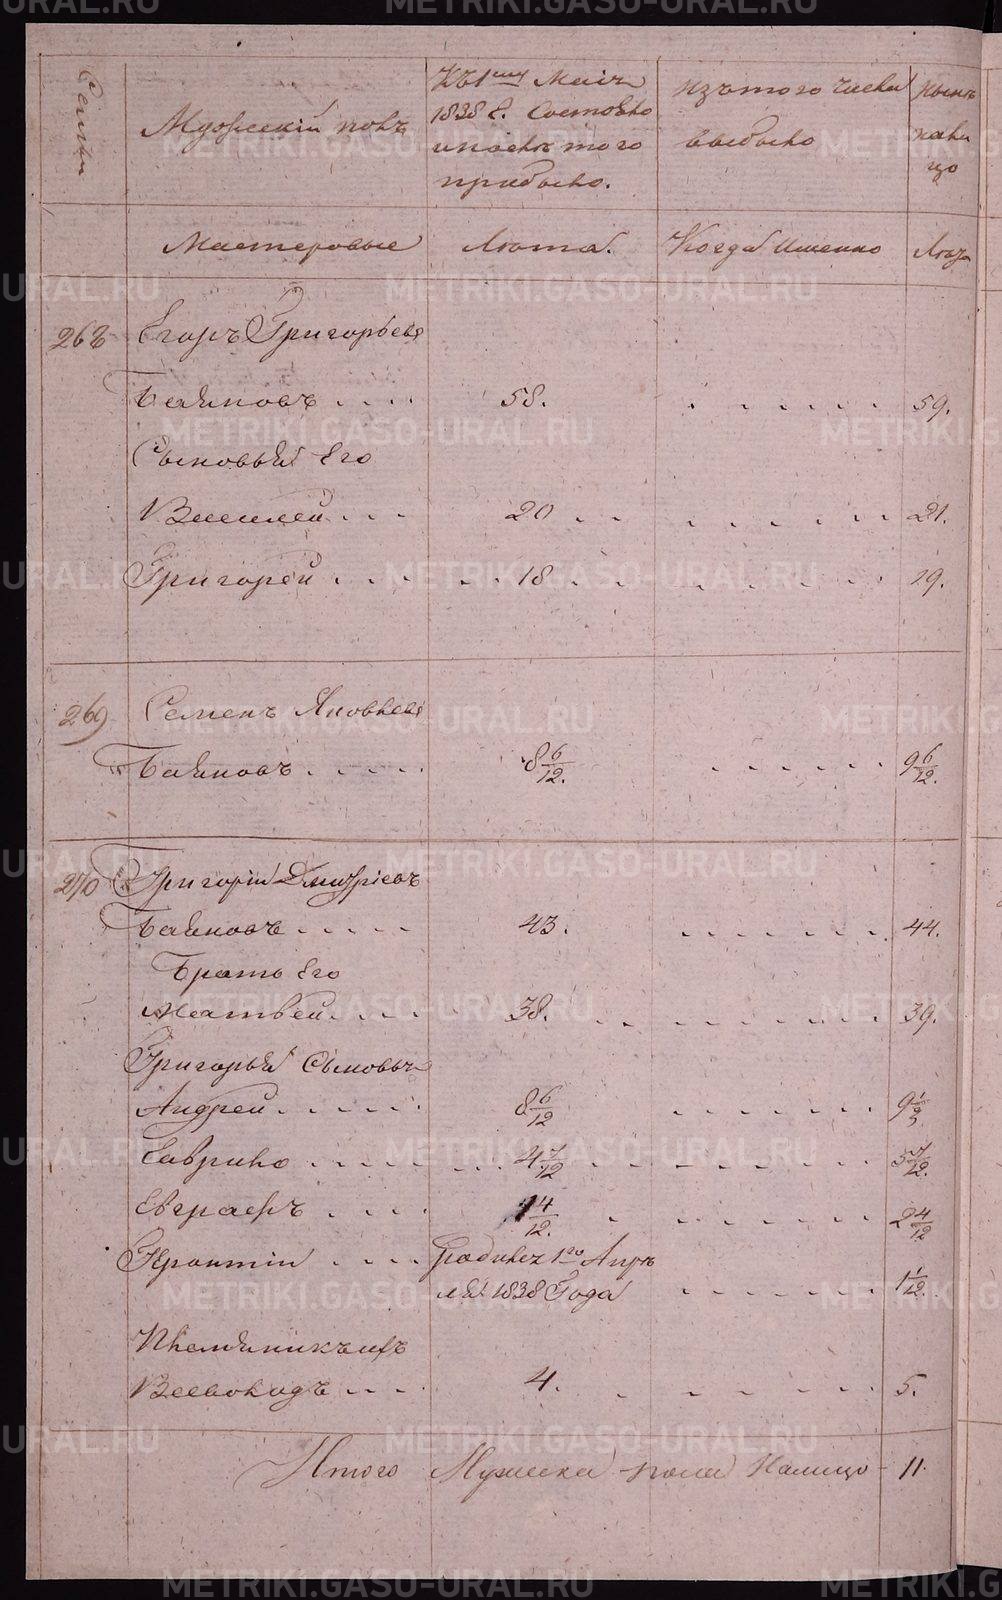 Семьи
Мужескій полъ
Къ 1му Маія
1838 г. Состояло
и после того
прибыло.
изъ того числа
выбыло
нынѣ
нали
цо
Мастеровые
Лѣта.
Когда Именно
Лѣта
268
Егоръ Григорьевъ
Баяновъ . . . . 58. . . . . . . . 59.
Сыновья Его
Василей . . . 20 . . . . . . . . 21.
Григорей . . . . . . 18 . . . . . . . . 19.
269
Семенъ Яковлевъ
Баяновъ . . . . . 8 6/12. . . . . . . . 9 6/12.
270
Григорій Дмитріевъ
Баяновъ . . . . . 43. . . . . . . . 44.
Братъ Его
Матвей . . . . . 38. . . . . . . . 39.
Григорья Сыновья
Андрей . . . . . 8 6/12 . . . . . . 9 1/2
Гаврило . . . . . . . 4 7/12 . . . . . . . . 5 7/12.
Евграфъ . . . . 1 4/12. . . . . . . . 2 4/12
Геронтій . . . . Родился 1го Апре
ля 1838 Года . . . . . . . 1 1/12.
Племянникъ ихъ
Всеволодъ . . . . 4. . . . . . . 5.
Итого Мужеска пола Налицо - 11.
METRIKI.GASO-URAL.RU